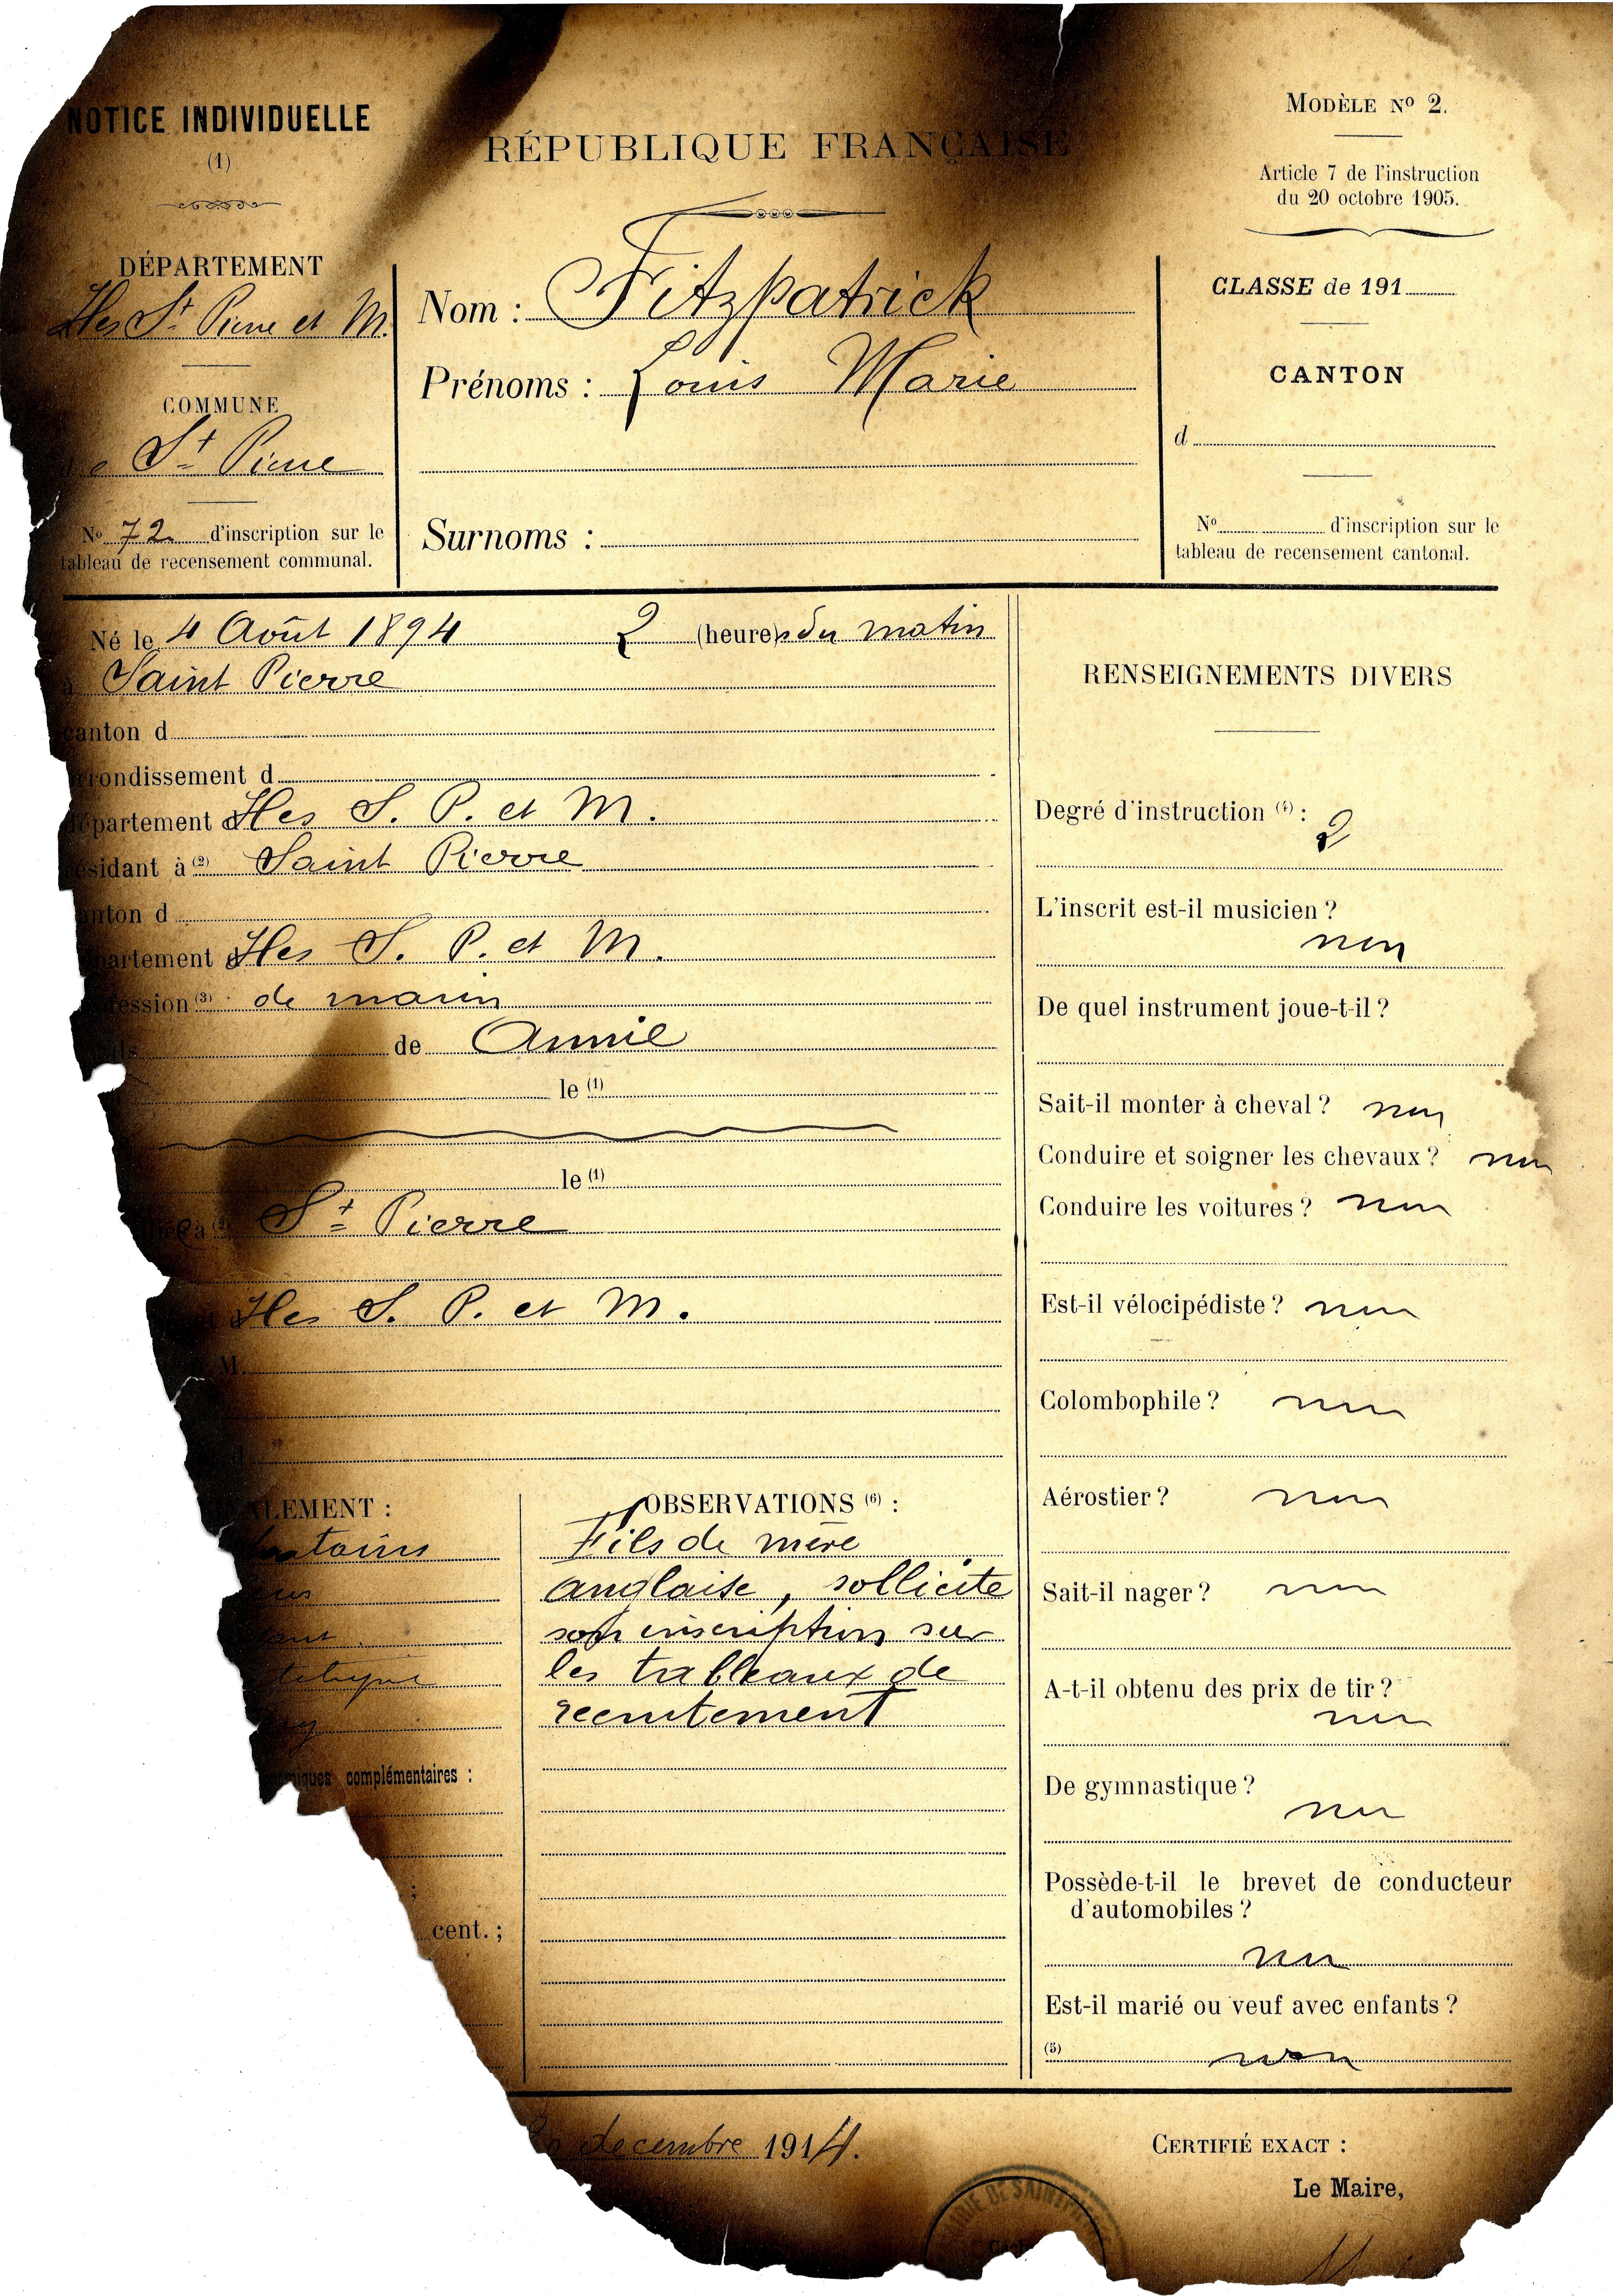 NOTICE INDIVIDUELLE
(1)
RÉPUBLIQUE FRANÇAISE
MODÈLE Nº 2.
Article 7 de l'instruction
du 20 octobre 1905.
DÉPARTEMENT
Iles St Pierre et M.
COMMUNE
de St Pierre
Nº 72 d'inscription sur le
tableau de recensement communal.
Nom : Fitzpatrick
Prénoms : Louis Marie
Surnoms :
CLASSE de 191
CANTON
d
Nº d'inscription sur le
tableau de recensement cantonal.
Né le 4 Août 1894 2 (heures du matin
à Saint Pierre
canton d
rondissement d
département d Iles S. P. et M.
résidant à (2) Saint Pierre
anton d
partement d Iles S. P. et M.
ession (3) de marin
fils de Annie
le (1)
le (1)
à St Pierre
Iles S. P. et M.
M.
ALEMENT :
complémentaires :
cent. ;
OBSERVATIONS (6) :
Fils de mère
anglaise, sollicite
son inscription sur
les tableaux de
recrutement
RENSEIGNEMENTS DIVERS
Degré d'instruction (4) :
2
L'inscrit est-il musicien ?
non
De quel instrument joue-t-il ?
Sait-il monter à cheval ? non
Conduire et soigner les chevaux ? non
Conduire les voitures ? non
Est-il vélocipédiste ? non
Colombophile ? non
Aérostier ? non
Sait-il nager ? non
A-t-il obtenu des prix de tir ?
non
De gymnastique ?
non
Possède-t-il le brevet de conducteur
d'automobiles ?
non
Est-il marié ou veuf avec enfants ?
(5) non
decembre 1914.
CERTIFIÉ EXACT :
Le Maire,
MAIRIE DE SAINT